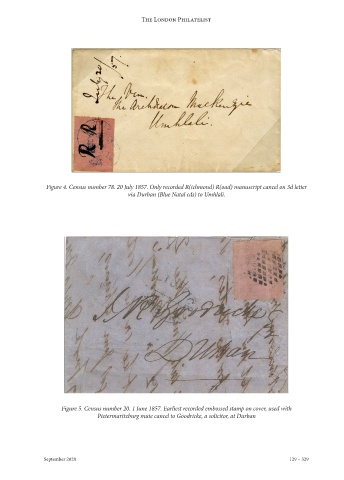 THE LONDON PHILATELIST
July 20/
57.
The Ven.
The Archdeacon Mackenzie
Umhlali.
R R
Figure 4. Census number 78. 20 July 1857. Only recorded R(ichmond) R(oad) manuscript cancel on 3d letter
via Durban (Blue Natal cds) to Umhlali.
Durban
Figure 5. Census number 20. 1 June 1857. Earliest recorded embossed stamp on cover, used with
Pietermaritzburg mute cancel to Goodricke, a solicitor, at Durban
September 2020
129 – 309